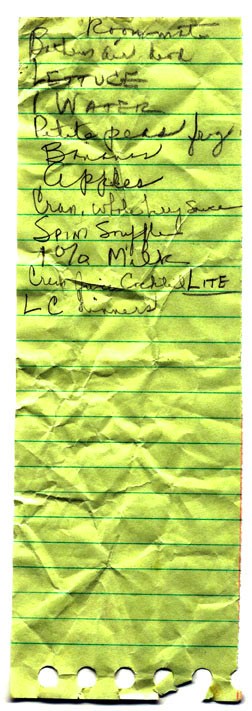 Roommate
Lettuce
1 Water
Petite peas frz
Bananas
Apples
Cran. whole berry Sauce
Spin Souffle
1% Milk
Cran juice Cocktail LITE
LC dinners